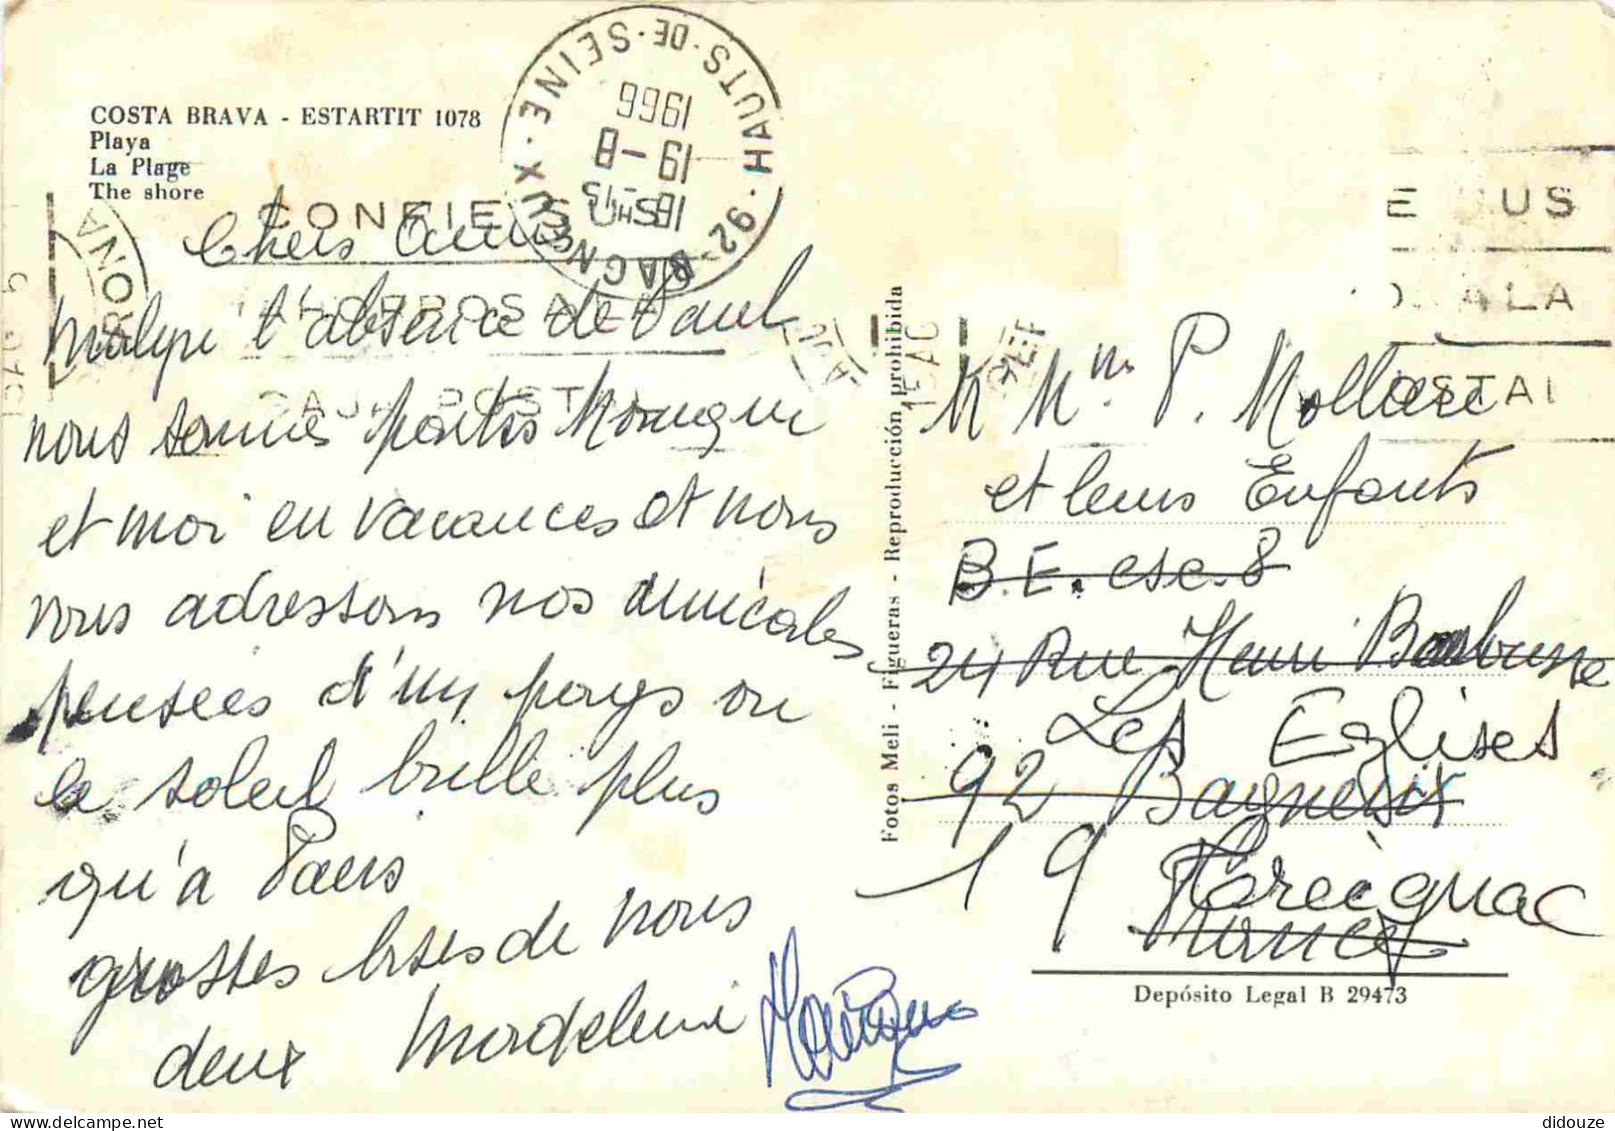 COSTA BRAVA - ESTARTIT 1078
Playa
La Plage
The shore
HAUTS-DE-SEINE
92 BAGNEUX
18H15
19-8
1966
CONFIE SUS
AHORROS A LA
CAJA POSTAL
E SUS
OS A LA
OSTAL
Chers Amis
Malgré l'absence de Paul
nous sommes parties Monique
et moi en vacances et nous
vous adressons nos amicales
pensées d'un pays ou
le soleil brille plus
qu'a Paris
grosses bises de nous
deux Madeleine Monique
Fotos Meli - Figueras - Reproducción prohibida
M Mme P. Mollard
et leurs Enfants
B.E. esc. 8
24 Rue Henri Barbusse
Les Eglises
92 Bagneux
19
France
Depósito Legal B 29473
didouze